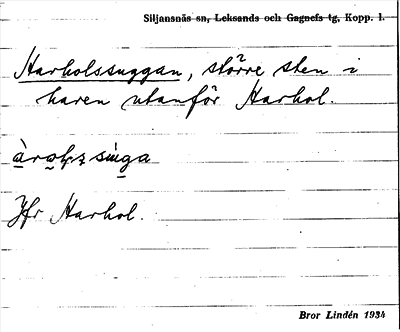 Siljansnäs sn, Leksands och Gagnefs tg, Kopp. l.
Harholssuggan, större sten i
haven utanför Harhol.
Jfr Harhol.
Bror Lindén 1934